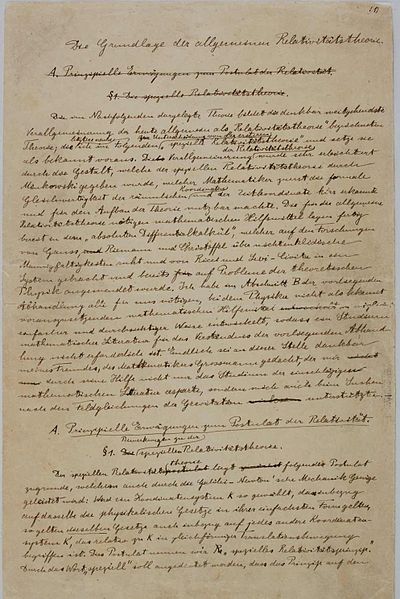 Die Grundlage der allgemeinen Relativitätstheorie.
A. Prinzipielle Erwägungen zum Postulat der Relativität.
§1. Die spezielle Relativitätstheorie.
Die im Nachfolgenden dargelegte Theorie bildet die denkbar weitgehendste
Verallgemeinerung der heute allgemein als "Relativitätstheorie" bezeichneten
Theorie; die letztere nenne ich im Folgenden zur Unterscheidung von der ersteren "spezielle Relativitätstheorie" und setze sie
als bekannt voraus. Die Verallgemeinerung der Relativitätstheorie wurde sehr erleichtert
durch die Gestalt, welche der speziellen Relativitätstheorie durch
Minkowski gegeben wurde, welcher Mathematiker zuerst die formale
Gleichwertigkeit der räumlichen und der Zeitkoordinate klar erkannte
und für den Aufbau der Theorie nutzbar machte. Die für die allgemeine
Relativitätstheorie nötigen mathematischen Hilfsmittel lagen fertig
bereit in dem "absoluten Differentialkalkül", welcher auf den Forschungen
von Gauss, Riemann und Christoffel über nichteuklidische
Mannigfaltigkeiten ruht und von Ricci und Levi-Civita in ein
System gebracht und bereits auf Probleme der theoretischen
Physik angewendet wurde. Ich habe im Abschnitt B der vorliegenden
Abhandlung alle für uns nötigen, bei dem Physiker nicht als bekannt
vorauszusetzenden mathematischen Hilfsmittel in möglichst
einfacher und durchsichtiger Weise entwickelt, sodass ein Studium
mathematischer Literatur für das Verständnis der vorliegenden Abhand-
lung nicht erforderlich ist. Endlich sei an dieser Stelle dankbar
meines Freundes, des Mathematikers Grossmann gedacht, der mir
durch seine Hilfe nicht nur das Studium der einschlägigen
mathematischen Literatur ersparte, sondern mich auch beim Suchen
nach den Feldgleichungen der Gravitation unterstützte.
A. Prinzipielle Erwägungen zum Postulat der Relativität.
Bemerkungen zu der
§1. Die spezielle Relativitätstheorie.
Der speziellen Relativitätstheorie liegt folgendes Postulat
zugrunde, welchem auch durch die Galilei-Newton'sche Mechanik Genüge
geleistet wird: Wird ein Koordinatensystem K so gewählt, dass inbezug
auf dasselbe die physikalischen Gesetze in ihrer einfachsten Form gelten,
so gelten dieselben Gesetze auch inbezug auf jedes andere Koordinaten-
system K', das relativ zu K in gleichförmiger Translationsbewegung
begriffen ist. Dies Postulat nennen wir "spezielles Relativitätsprinzip".
Durch das Wort "speziell" soll angedeutet werden, dass das Prinzip auf den